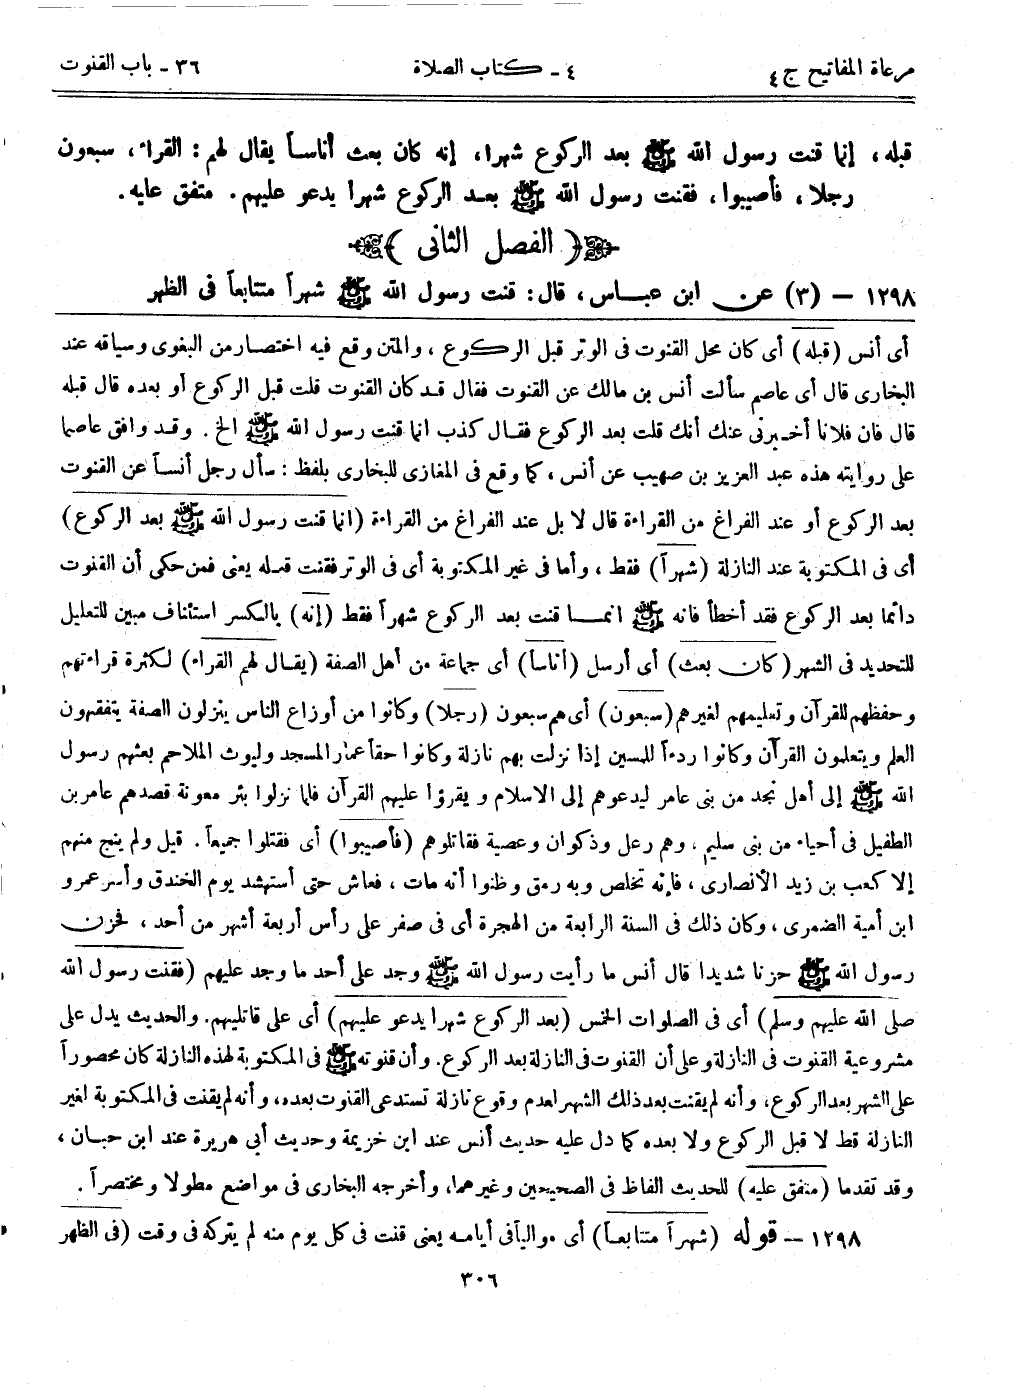 مرعاة المفاتيح ج ٤ ٤ - كتاب الصلاة ٣٦ - باب القنوت
قبله، إنما قنت رسول الله ﷺ بعد الركوع شهرا، إنه كان بعث أناساً يقال لهم: القراء، سبعون
رجلا، فأصيبوا، فقنت رسول الله ﷺ بعد الركوع شهراً يدعو عليهم. متفق عليه.
﴿ الفصل الثانى ﴾
١٢٩٨ – (٣) عن ابن عباس، قال: قنت رسول الله ﷺ شهراً متتابعاً فى الظهر
أى أنس (قبله) أى كان محل القنوت فى الوتر قبل الركوع، والمتن وقع فيه اختصار من البغوى وسياقه عند
البخارى قال أى عاصم سألت أنس بن مالك عن القنوت فقال قد كان القنوت قلت قبل الركوع أو بعده قال قبله
قال فان فلانا أخبرنى عنك أنك قلت بعد الركوع فقال كذب انما قنت رسول الله ﷺ الخ. وقد وافق عاصما
على روايته هذه عبد العزيز بن صهيب عن أنس، كما وقع فى المغازى للبخارى بلفظ: سأل رجل أنساً عن القنوت
بعد الركوع أو عند الفراغ من القراءة قال لا بل عند الفراغ من القراءة (انما قنت رسول الله ﷺ بعد الركوع)
أى فى المكتوبة عند النازلة (شهراً) فقط، وأما فى غير المكتوبة أى فى الوتر فقنت قبله يعنى فمن حكى أن القنوت
دائما بعد الركوع فقد أخطأ فانه ﷺ انما قنت بعد الركوع شهراً فقط (إنه) بالكسر استئناف مبين للتعليل
للتحديد فى الشهر (كان بعث) أى أرسل (أناساً) أى جماعة من أهل الصفة (يقال لهم القراء) لكثرة قراءتهم
وحفظهم للقرآن وتعليمهم لغيرهم (سبعون) أى هم سبعون (رجلا) وكانوا من أوزاع الناس ينزلون الصفة يتفقهون
العلم ويتعلمون القرآن وكانوا ردءاً للمسلمين إذا نزلت بهم نازلة وكانوا حقاً عمار المسجد وليوث الملاحم بعثهم رسول
الله ﷺ إلى أهل نجد من بنى عامر ليدعوهم إلى الاسلام ويقرؤا عليهم القرآن فلما نزلوا بئر معونة قصدهم عامر بن
الطفيل فى أحياء من بنى سليم، وهم رعل وذكوان وعصية فقاتلوهم (فأصيبوا) أى فقتلوا جميعاً. قيل ولم ينج منهم
إلا كعب بن زيد الأنصارى، فإنه تخلص وبه رمق وظنوا أنه مات، فعاش حتى أستشهد يوم الخندق وأسر عمرو
ابن أمية الضمرى، وكان ذلك فى السنة الرابعة من الهجرة أى فى صفر على رأس أربعة أشهر من أحد، فحزن
رسول الله ﷺ حزنا شديدا قال أنس ما رأيت رسول الله ﷺ وجد على أحد ما وجد عليهم (فقنت رسول الله
صلى الله عليهم وسلم) أى فى الصلوات الخمس (بعد الركوع شهرا يدعو عليهم) أى على قاتليهم. والحديث يدل على
مشروعية القنوت فى النازلة وعلى أن القنوت فى النازلة بعد الركوع. وأن قنوته ﷺ فى المكتوبة لهذه النازلة كان محصوراً
على الشهر بعد الركوع، وأنه لم يقنت بعد ذلك الشهر لعدم وقوع نازلة تستدعى القنوت بعده، وأنه لم يقنت فى المكتوبة لغير
النازلة قط لا قبل الركوع ولا بعده كما دل عليه حديث أنس عند ابن خزيمة وحديث أبى هريرة عند ابن حبان،
وقد تقدما (متفق عليه) للحديث ألفاظ فى الصحيحين وغيرهما، وأخرجه البخارى فى مواضع مطولا ومختصراً.
١٢٩٨ – قوله (شهراً متتابعاً) أى موالياً فى أيامه يعنى قنت فى كل يوم منه لم يتركه فى وقت (فى الظهر
٣٠٦